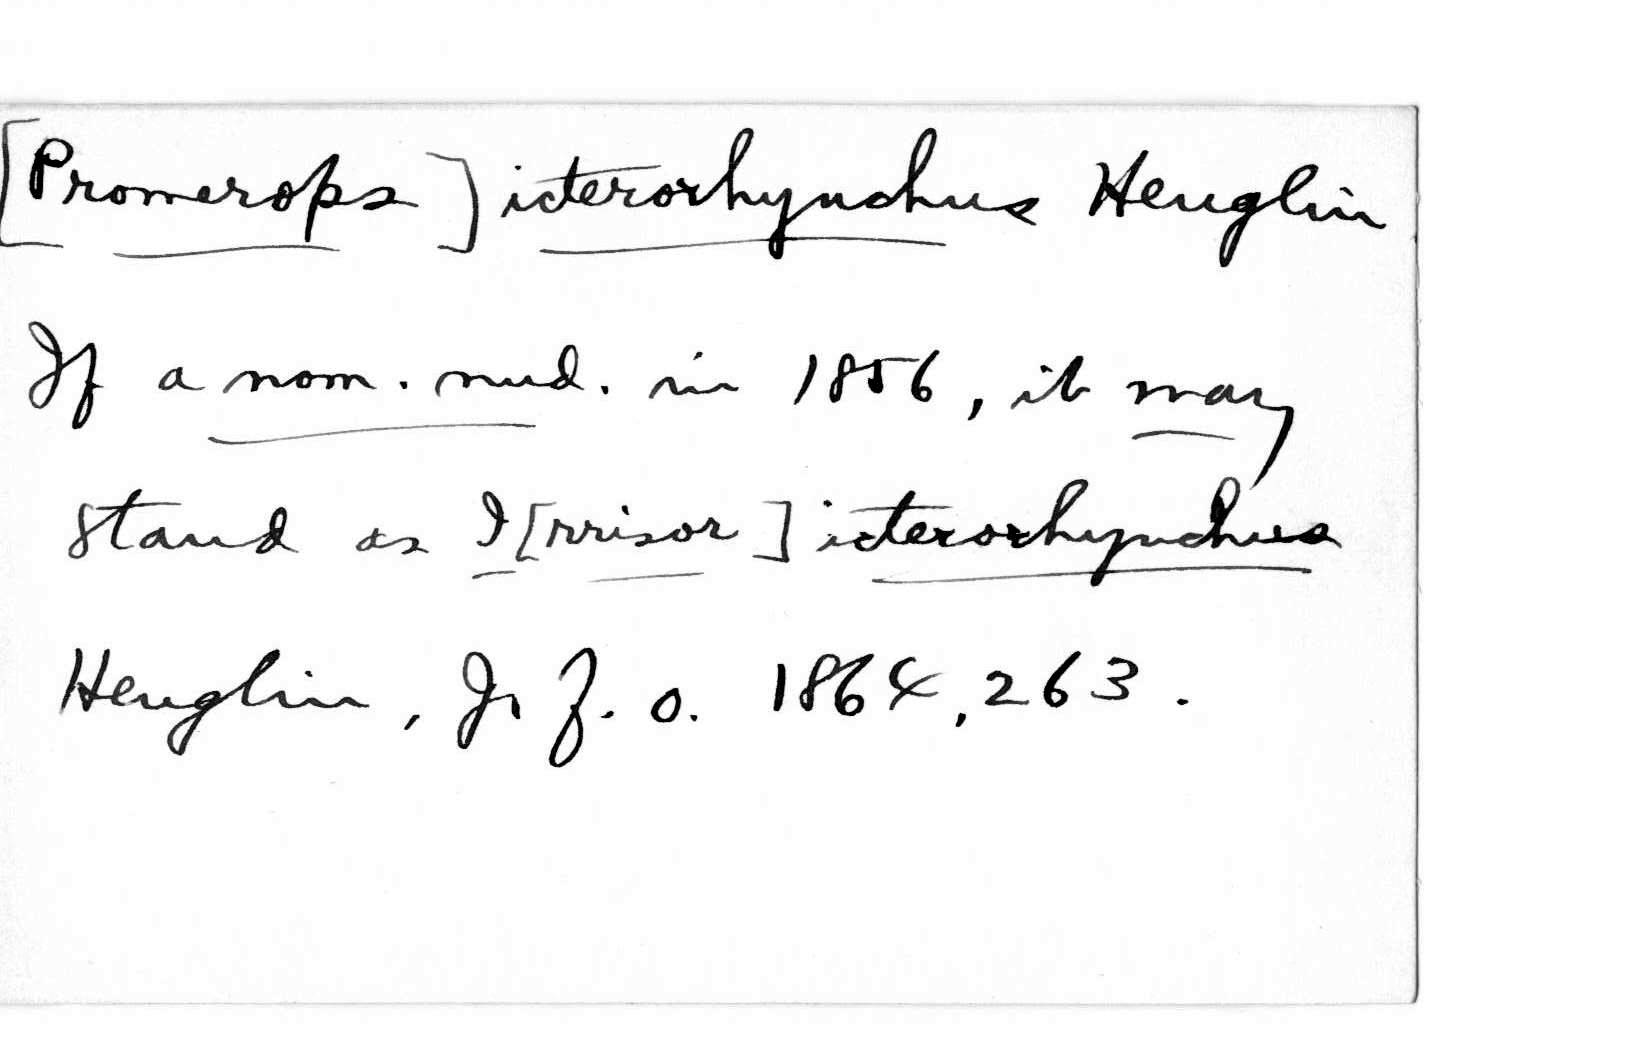 [Promerops] icterorhynchus Heuglin
If a nom. nud. in 1856, it may
stand as I[rrisor] icterorhynchus
Heuglin, J. f. o. 1864, 263.